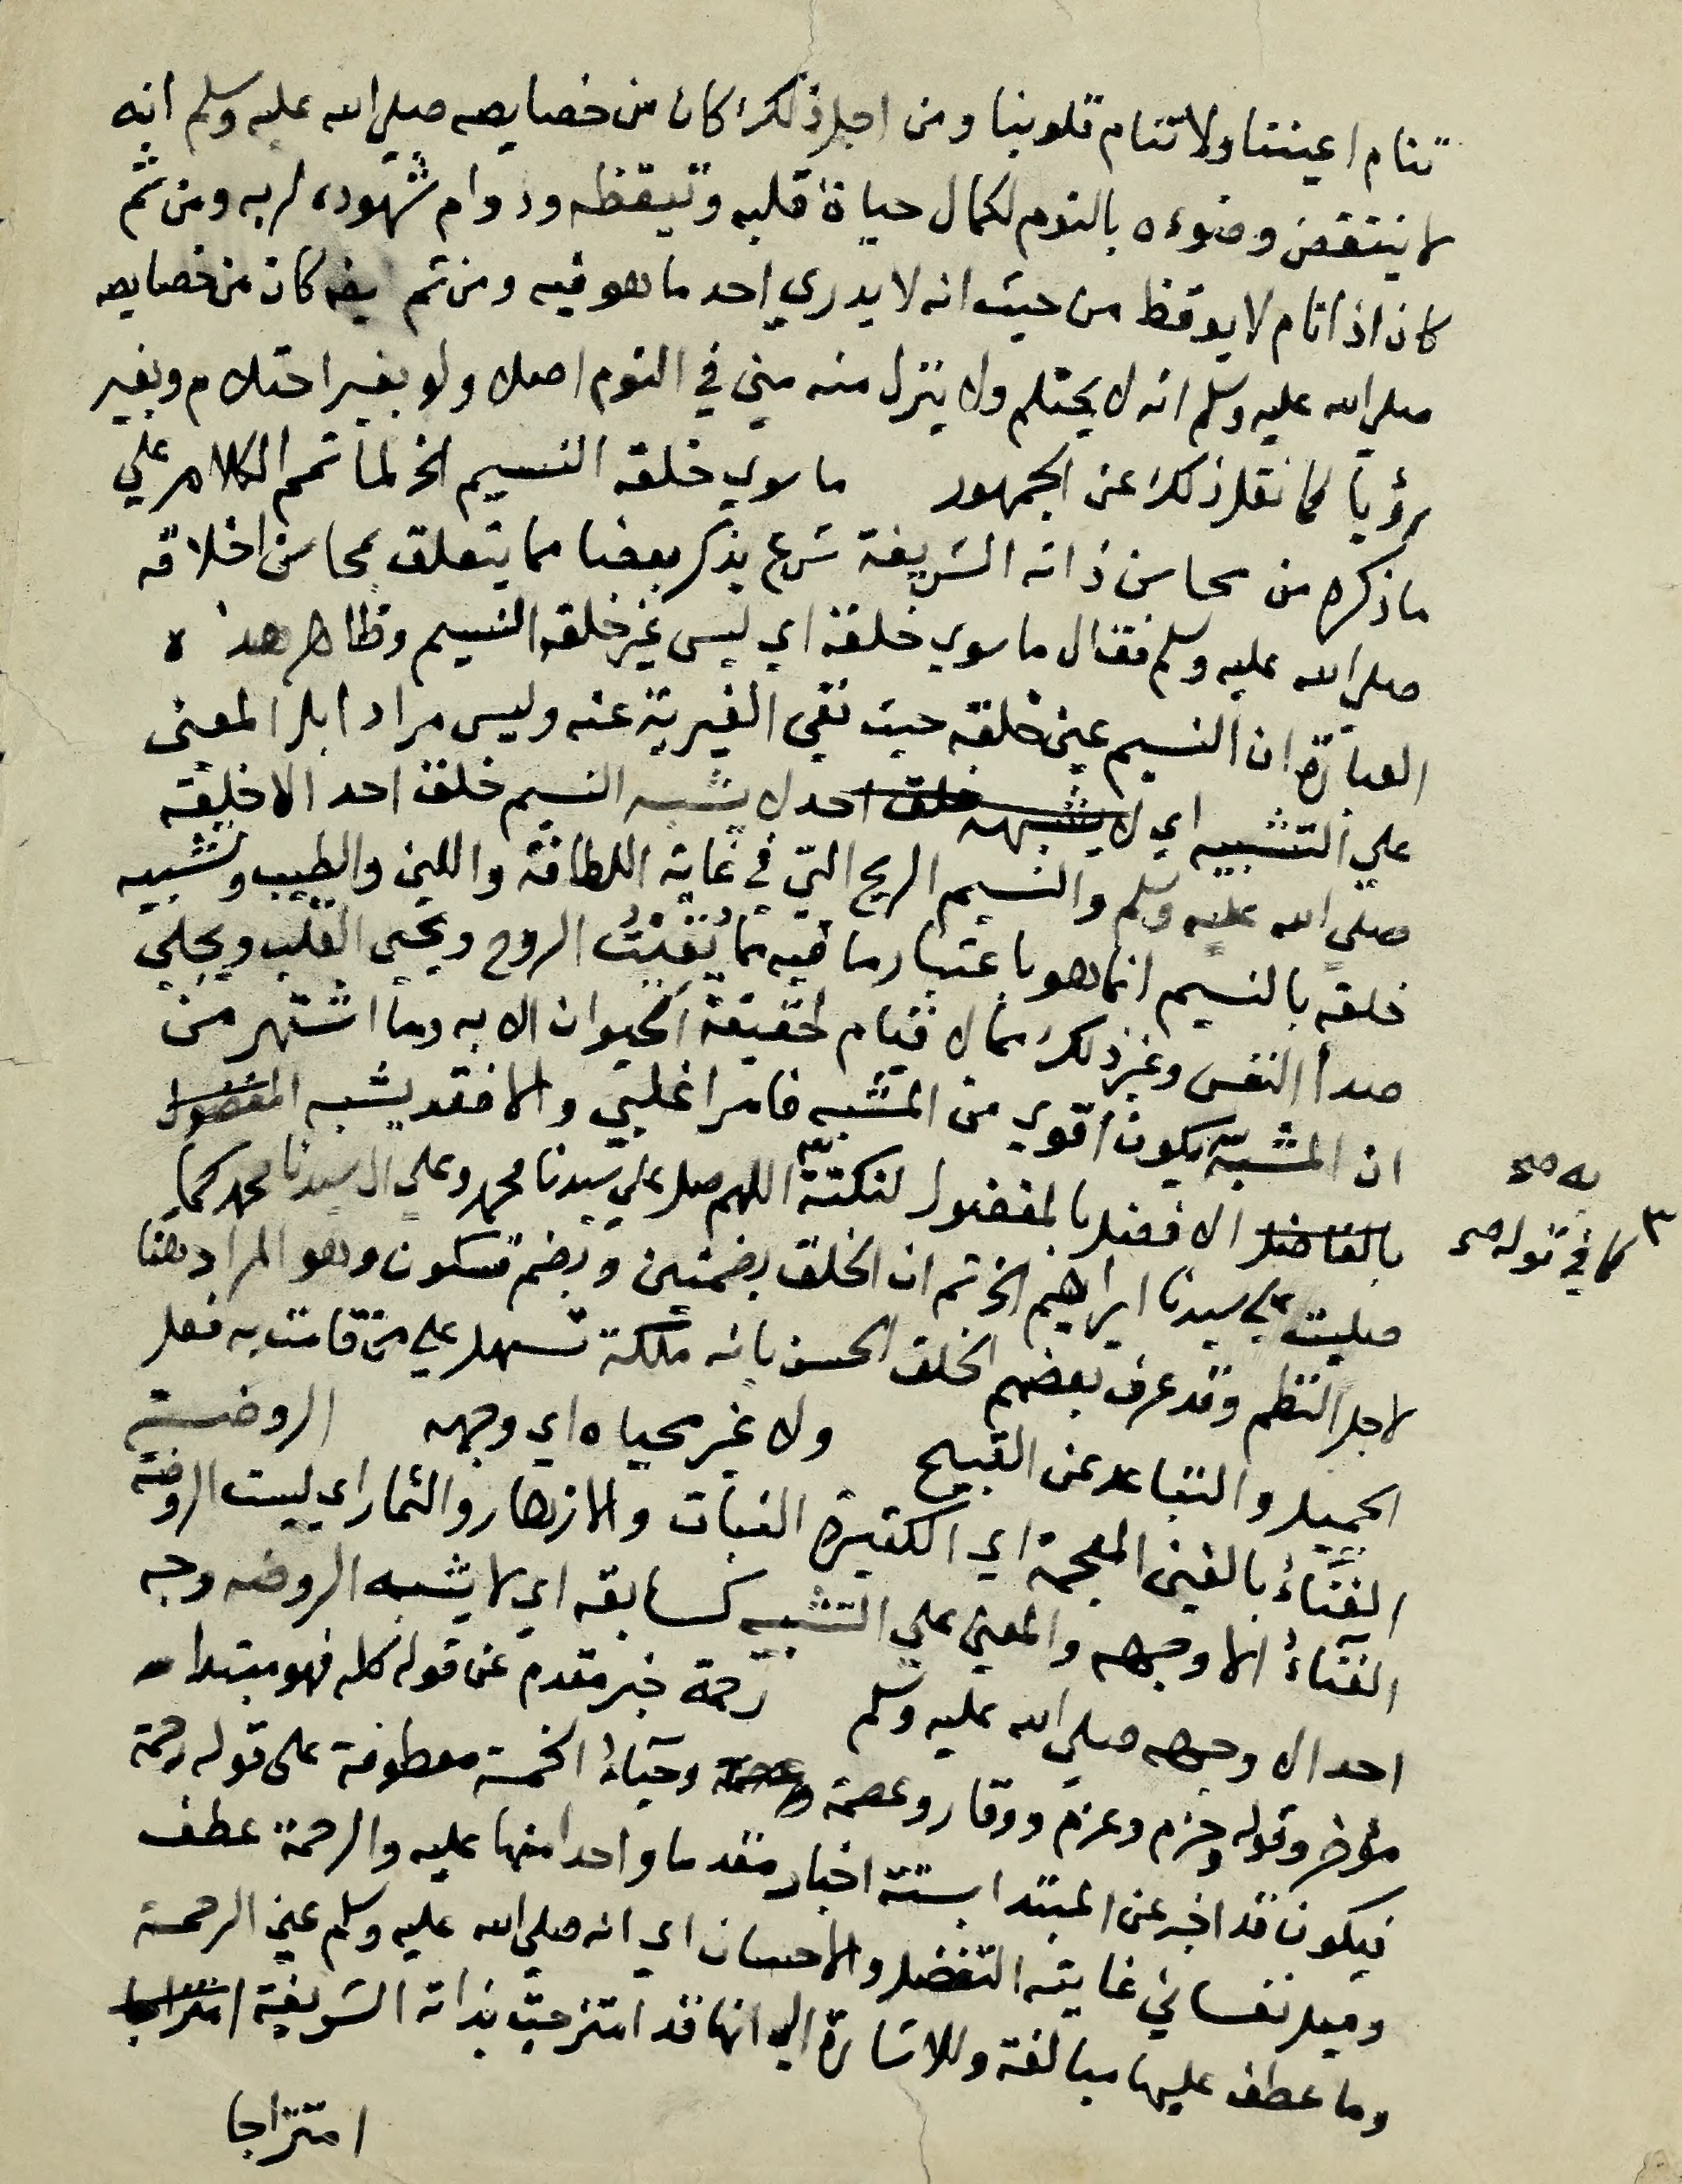 تنام اعيننا ولا تنام قلوبنا ومن اجل ذلك كان من خصايصه صلي الله عليه وسلم انه
لا ينتقض وضوءه بالنوم لكمال حياة قلبه وتيقظه ودوام شهوده لربه ومن ثم
كان اذا نام لا يوقظ من حيث انه لا يدري احد ما هو فيه ومن ثم كان من خصايصه
صلي الله عليه وسلم انه لا يحتلم ولا ينزل منه مني في النوم اصلا ولو بغير احتلام وبغير
رؤيا كما نقل ذلك عن الجمهور ما سوي خلقه النسيم الخ لما تمم الكلام علي
ما ذكره من محاسن ذاته الشريفة شرع يذكر بعضا مما يتعلق بمحاسن اخلاقه
صلي الله عليه وسلم فقال ما سوي خلقه اي ليس غير خلقه النسيم وظاهر هذه
العبارة ان النسيم عين خلقه حيث نفي الغيرية عنه وليس مرادا بل المعني
علي التشبيه اي لا يشبهه خلق احد لا يشبه النسيم خلق احد الا خلقه
صلي الله عليه وسلم والنسيم الريح التي في غاية اللطافة واللين والطيب وتشبيه
خلقه بالنسيم انما هو باعتبار ما فيه مما يُقِيْتُ الروح ويحيي القلب ويجلي
صدأ النفس وغير ذلك مما لا قيام لحقيقة الحيوان الا به وما اشتهر من
ان المشبّه يكون اقوي من المشبه فامر اغلبي والا فقد يشبه المفضول
بالفاضل الافضل بالمفضول لنكتة ٣ اللهم صل علي سيدنا محمد وعلي ال سيدنا محمد كما
به صح
٣ كما في قوله صح
صليت علي سيدنا ابراهيم الخ ثم ان الخلق بضمتين وبضم فسكون وهو المراد هنا
لاجل النظم وقد عرف بعضهم الخلق الحسن بانه ملكة تسهل علي من قامت به فعل
الجميل والتباعد عن القبيح ولا غير محياه اي وجهه الروضة
الغنَّاءُ بالغين المعجمة اي الكثيرة النبات والازهار والثمار اي ليست الروضة
الغنَّاءُ الا وجهه والمعني علي التشبيه كسابقه اي لا يشبه الروضه وجه
احد الا وجهه صلي الله عليه وسلم رحمة خبر مقدم عن قوله كله فهو مبتدا
مؤخر وقوله وحزم وعزم ووقار وعصمة وعصمة وحياءُ الخمسة معطوفة على قوله رحمة
فيكون قد اخبر عن المبتدا بستة اخبار مقدما واحدا منها عليه والرحمة عطف
وميل نفساني غايته التفضل والاحسان اي انه صلي الله عليه وسلم عين الرحمة
وما عطف عليها مبالغة وللاشارة الي انها قد امتزجت بذاته الشريفة امتزاجا
امتزاجا